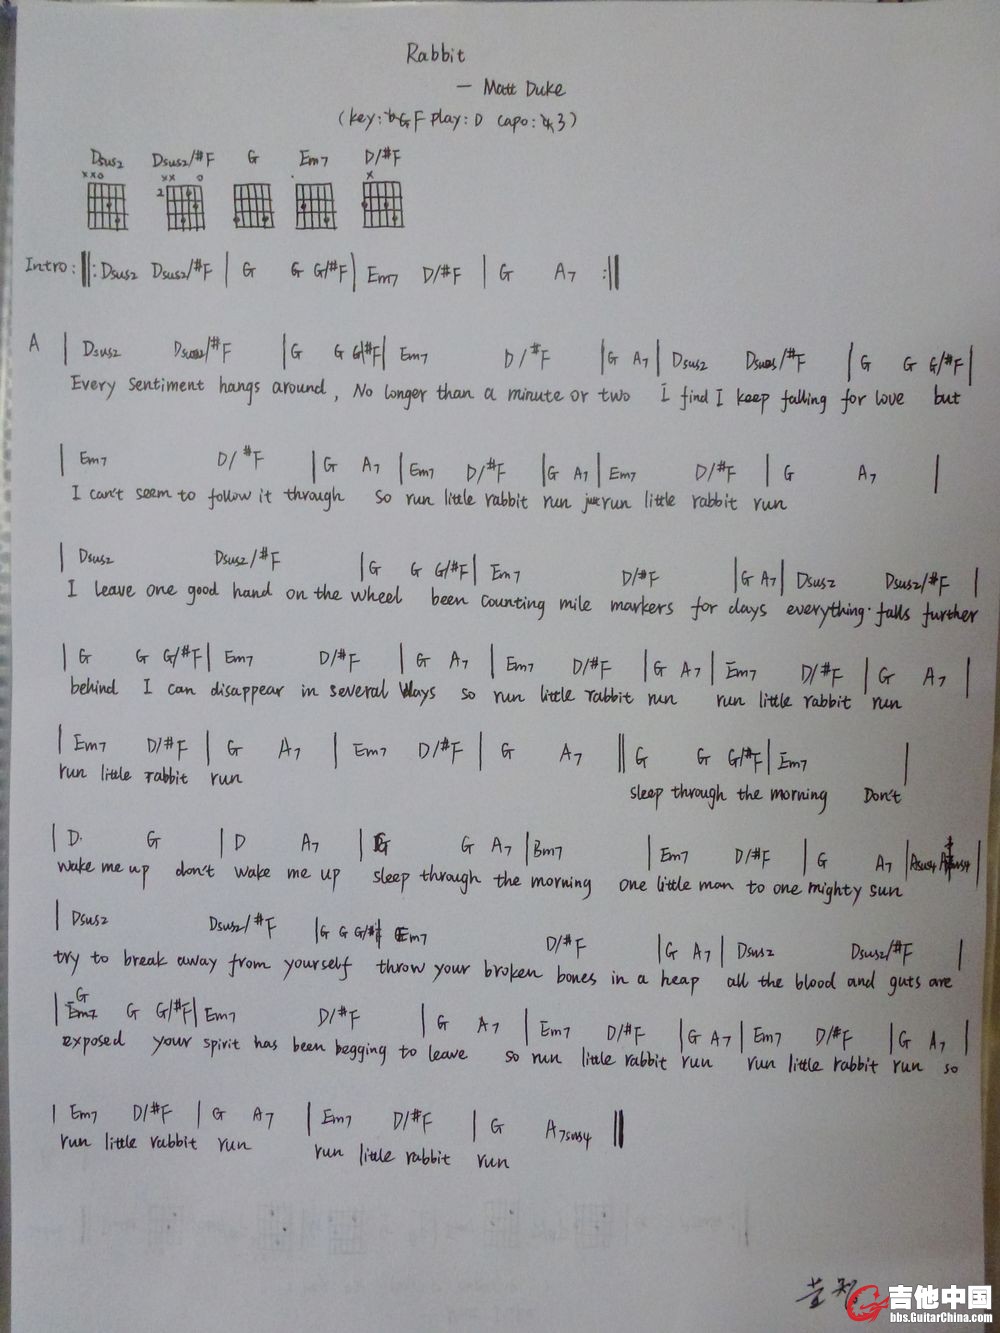 Rabbit
— Matt Duke
(key: F play: D capo: 3)
Dsus2 Dsus2/#F G Em7 D/#F
xxo xx o x
2
Intro: ‖: Dsus2 Dsus2/#F | G G G/#F | Em7 D/#F | G A7 :‖
A | Dsus2 Dsus2/#F | G G G/#F | Em7 D/#F | G A7 | Dsus2 Dsus2/#F | G G G/#F |
Every sentiment hangs around, No longer than a minute or two I find I keep falling for love but
| Em7 D/#F | G A7 | Em7 D/#F | G A7 | Em7 D/#F | G A7 |
I can't seem to follow it through so run little rabbit run just run little rabbit run
| Dsus2 Dsus2/#F | G G G/#F | Em7 D/#F | G A7 | Dsus2 Dsus2/#F |
I leave one good hand on the wheel been counting mile markers for days everything falls further
| G G G/#F | Em7 D/#F | G A7 | Em7 D/#F | G A7 | Em7 D/#F | G A7 |
behind I can disappear in several ways so run little rabbit run run little rabbit run
| Em7 D/#F | G A7 | Em7 D/#F | G A7 ‖ G G G/#F | Em7 |
run little rabbit run sleep through the morning Don't
| D G | D A7 | G G A7 | Bm7 | Em7 D/#F | G A7 | Asus4 |
wake me up don't wake me up sleep through the morning one little man to one mighty sun
| Dsus2 Dsus2/#F | G G G/# Em7 D/#F | G A7 | Dsus2 Dsus2/#F |
try to break away from yourself throw your broken bones in a heap all the blood and guts are
| G G G/#F | Em7 D/#F | G A7 | Em7 D/#F | G A7 | Em7 D/#F | G A7 |
exposed your spirit has been begging to leave so run little rabbit run run little rabbit run so
| Em7 D/#F | G A7 | Em7 D/#F | G A7sus4 ‖
run little rabbit run run little rabbit run
吉他中国
bbs.GuitarChina.com